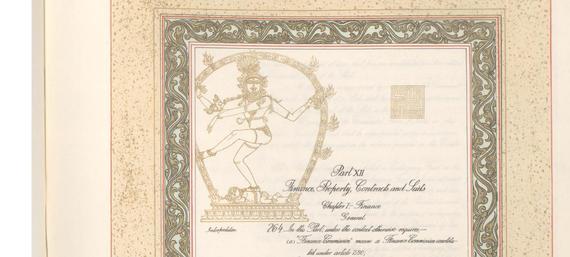 Part XII
Finance, Property, Contracts and Suits
Chapter I.- Finance
General
264. In this Part, unless the context otherwise requires,—
(a) "Finance Commission" means a Finance Commission constitu-
ted under article 280;